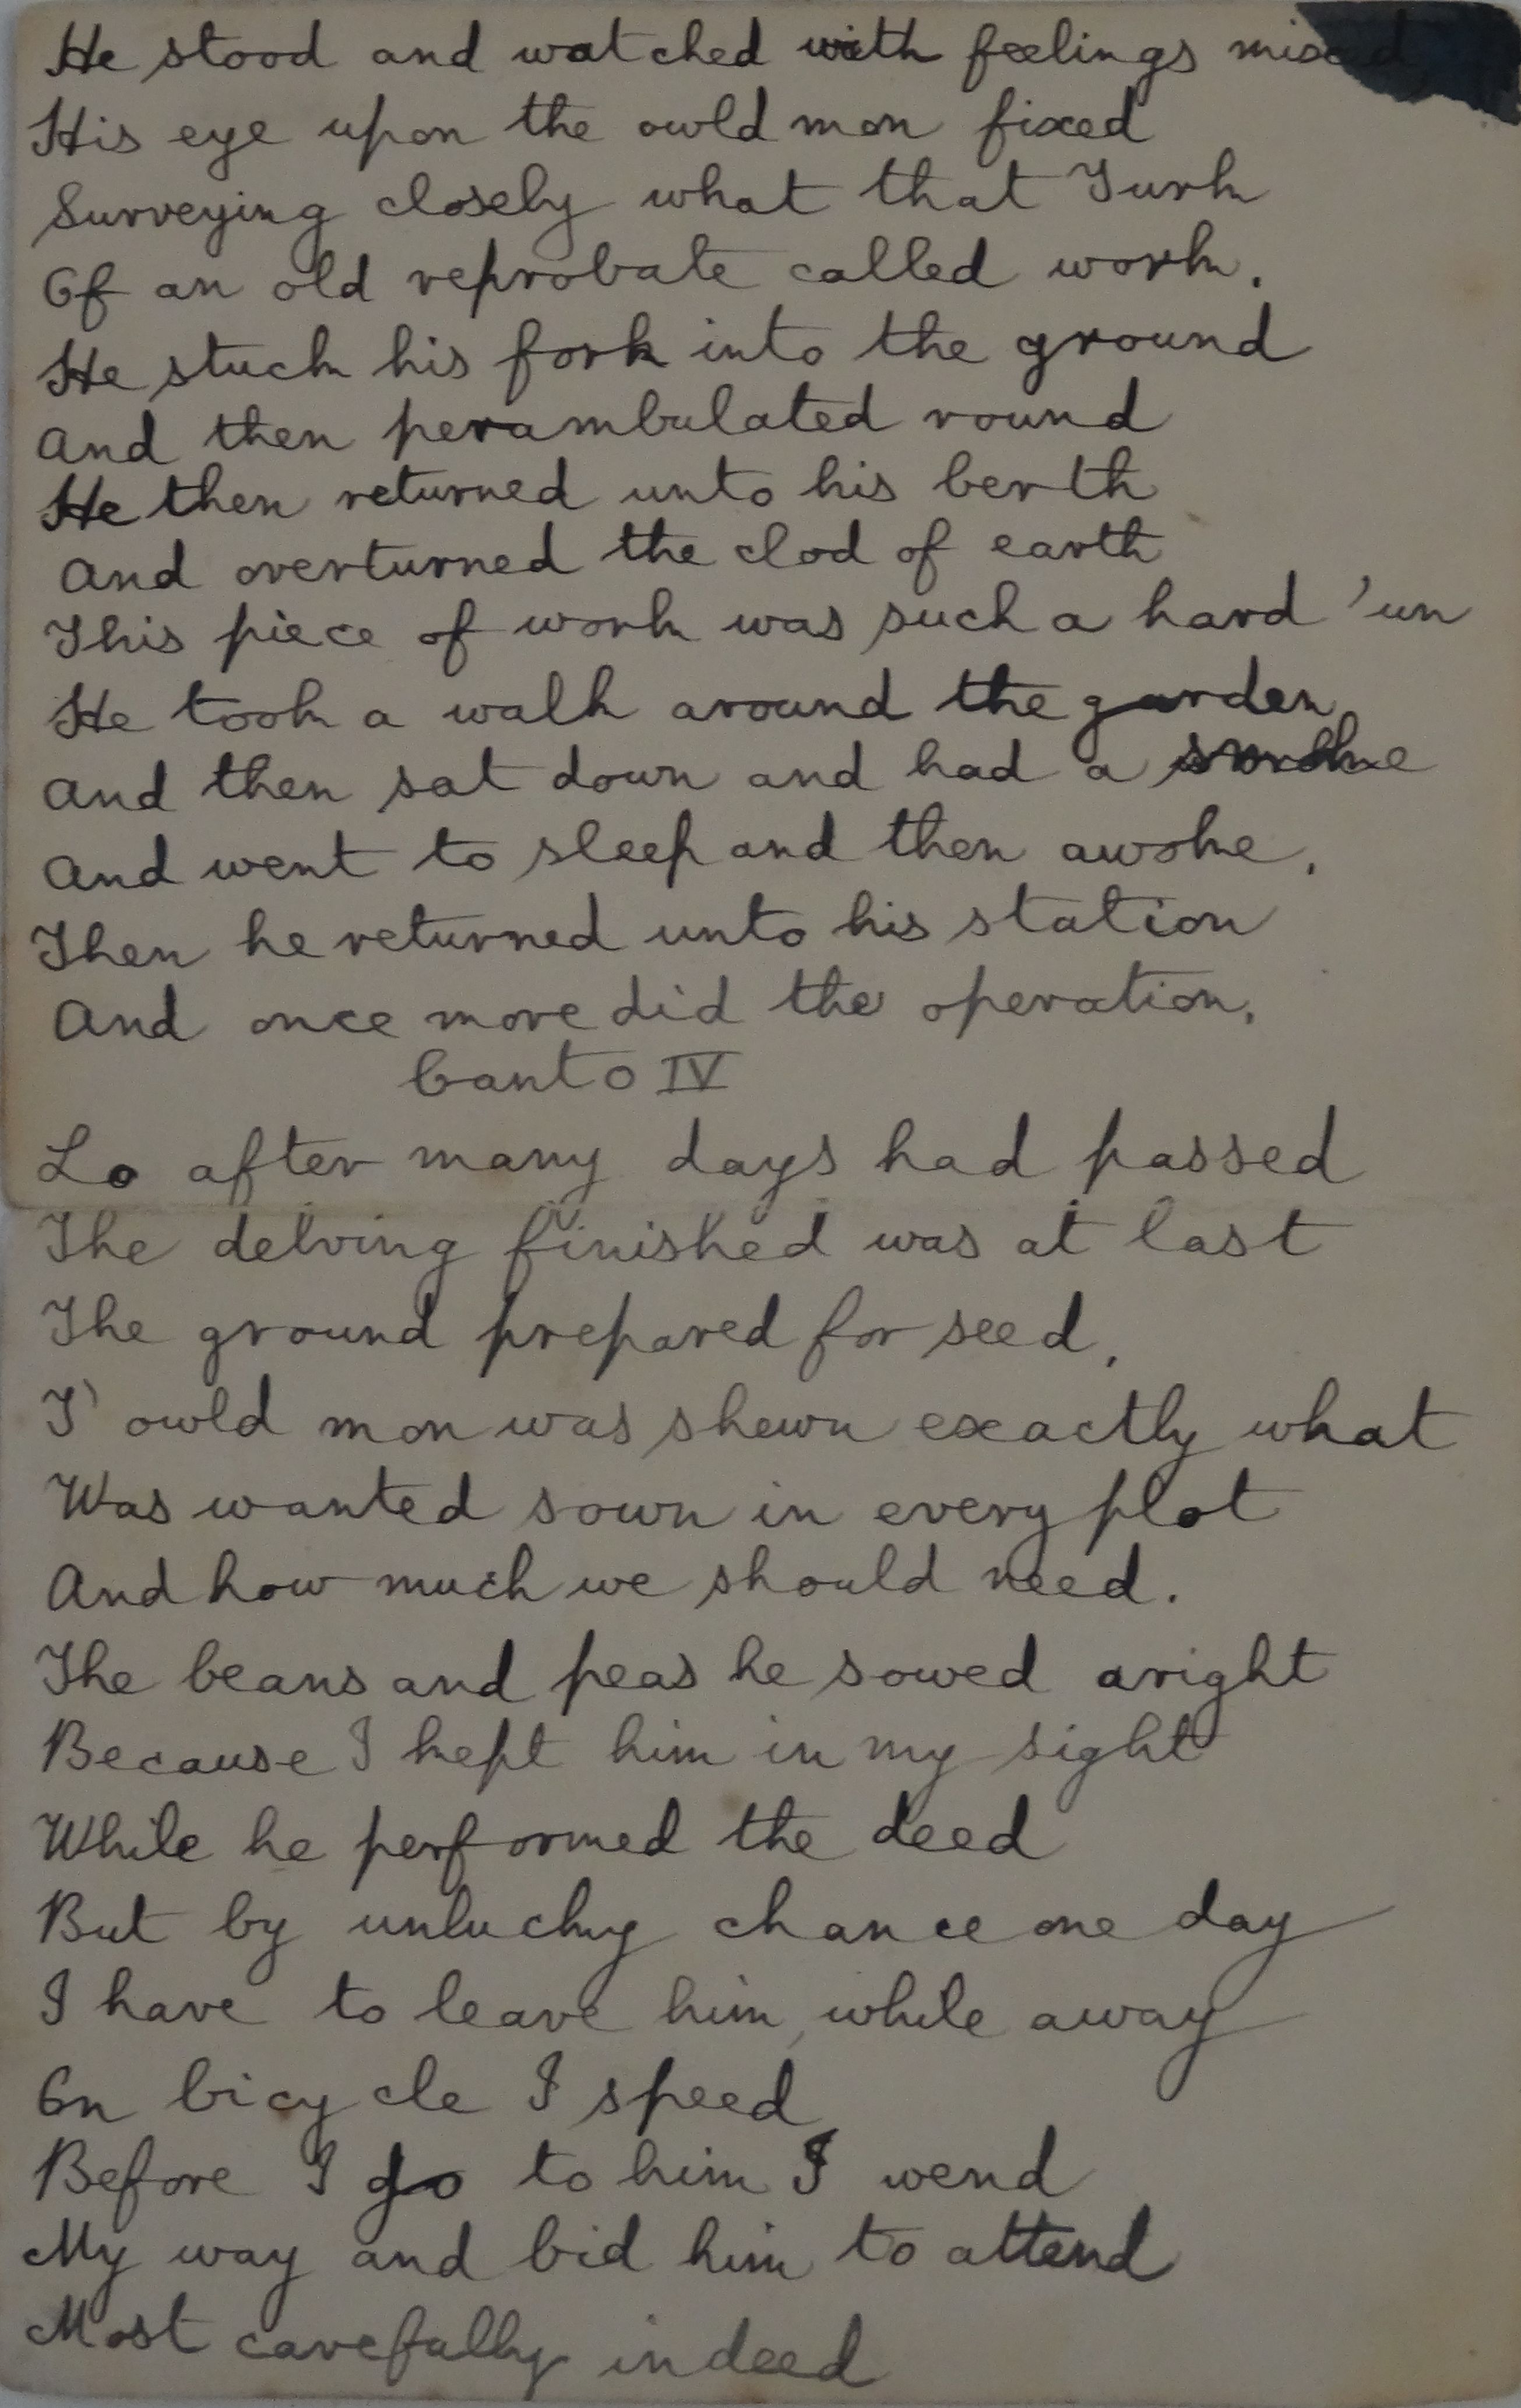 He stood and watched with feelings mixed
His eye upon the owld mon fixed
Surveying closely what that Turk
Of an old reprobate called work.
He stuck his fork into the ground
And then perambulated round
He then returned unto his berth
And overturned the clod of earth
This piece of work was such a hard 'un
He took a walk around the garden
And then sat down and had a smoke
And went to sleep and then awoke.
Then he returned unto his station
And once more did the operation.
Canto IV
Lo after many days had passed
The delving finished was at last
The ground prepared for seed,
T' owld mon was shewn exactly what
Was wanted sown in every plot
And how much we should need.
The beans and peas he sowed aright
Because I kept him in my sight
While he performed the deed
But by unlucky chance one day
I have to leave him, while away
On bicycle I speed
Before I go to him I wend
My way and bid him to attend
Most carefully indeed